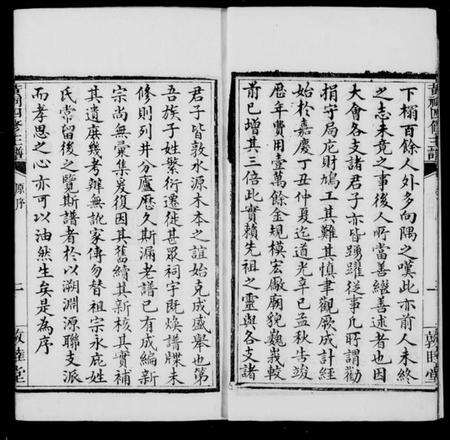 下榻百餘人外多向隅之嘆此亦前人未終
之志未竟之事後人所當善繼善述者也因
大會各支諸君子亦皆踴躍從事凡所謂勸
捐宇局庀財鳩工其難其慎聿觀厥成計經
始於嘉慶丁丑仲夏迄道光辛巳孟秋告竣
歷年費用壹萬餘金規模宏敞廟貌巍峩較
前已增其三倍此實賴先祖之靈與各支諸
君子皆敦水源木本之誼始克成盛舉也第
吾族子姓繁衍遷徙甚眾祠宇既煥譜牒未
修則列井分廬歷久斯漏老譜已有成編新
宗尚無彙集爰復因其舊續其新核其實補
其遺庶幾考辦無訛家傳勿替祖宗永庇姓
氏常留後之覽斯譜者於以溯淵源聯支派
而孝思之心亦可以油然生矣是為序
原序
二
敦睦堂